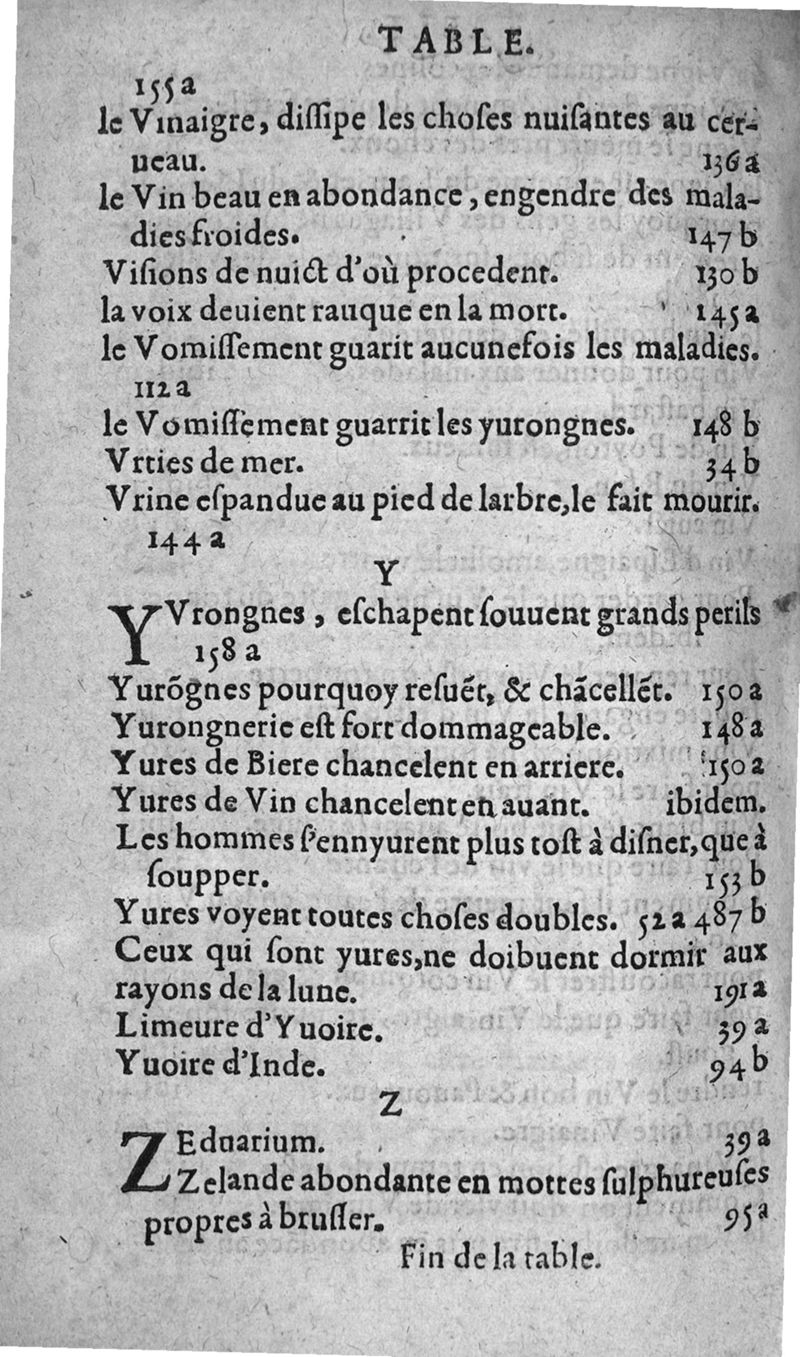 TABLE.
155a
le Vinaigre, diſſipe les choſes nuiſantes au cer-
ueau. 136a
le Vin beau en abondance, engendre des mala-
dies froides. 147 b
Viſions de nuict d'où procedent. 130 b
la voix deuient rauque en la mort. 145a
le Vomiſſement guarit aucunefois les maladies.
112a
le Vomiſſement guarrit les yurongnes. 148 b
Vrties de mer. 34b
Vrine eſpandue au pied de larbre, le fait mourir.
144a
Y
YVrongnes, eſchapent ſouuent grands perils
158 a
Yurõgnes pourquoy reſuẽt, & chãcellẽt. 150a
Yurongnerie eſt fort dommageable. 148a
Yures de Biere chancelent en arriere. 150a
Yures de Vin chancelent en auant. ibidem.
Les hommes ſ'ennyurent plus toſt à diſner, que à
ſoupper. 153 b
Yures voyent toutes choſes doubles. 52a 487 b
Ceux qui ſont yures, ne doibuent dormir aux
rayons de la lune. 191a
Limeure d'Yuoire. 39a
Yuoire d'Inde. 94b
Z
ZEduarium. 39a
Zelande abondante en mottes ſulphureuſes
propres à bruſler. 95a
Fin de la table.